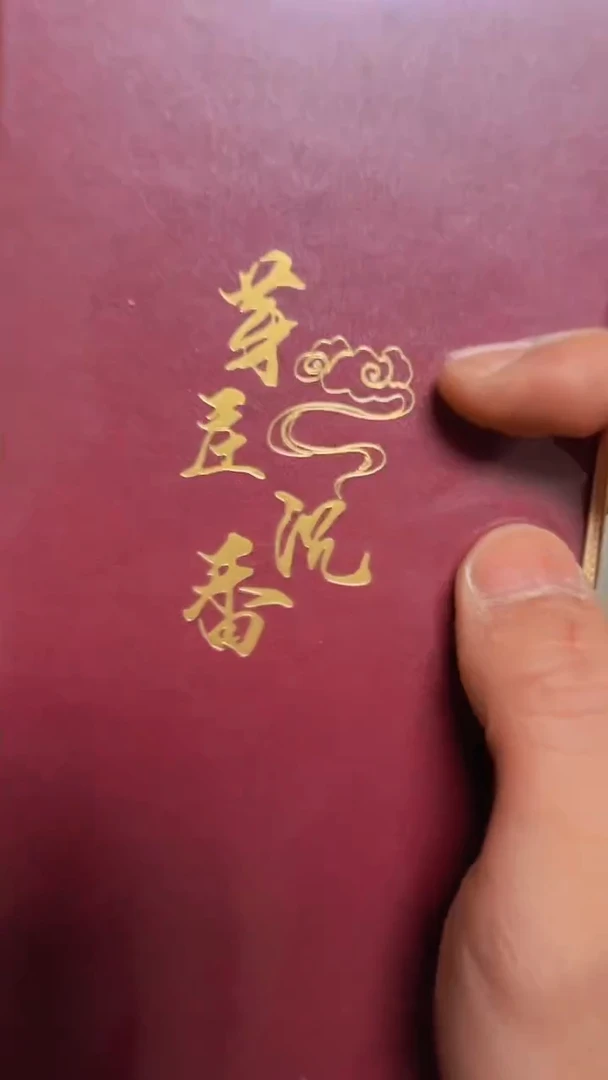 芽庄沉香